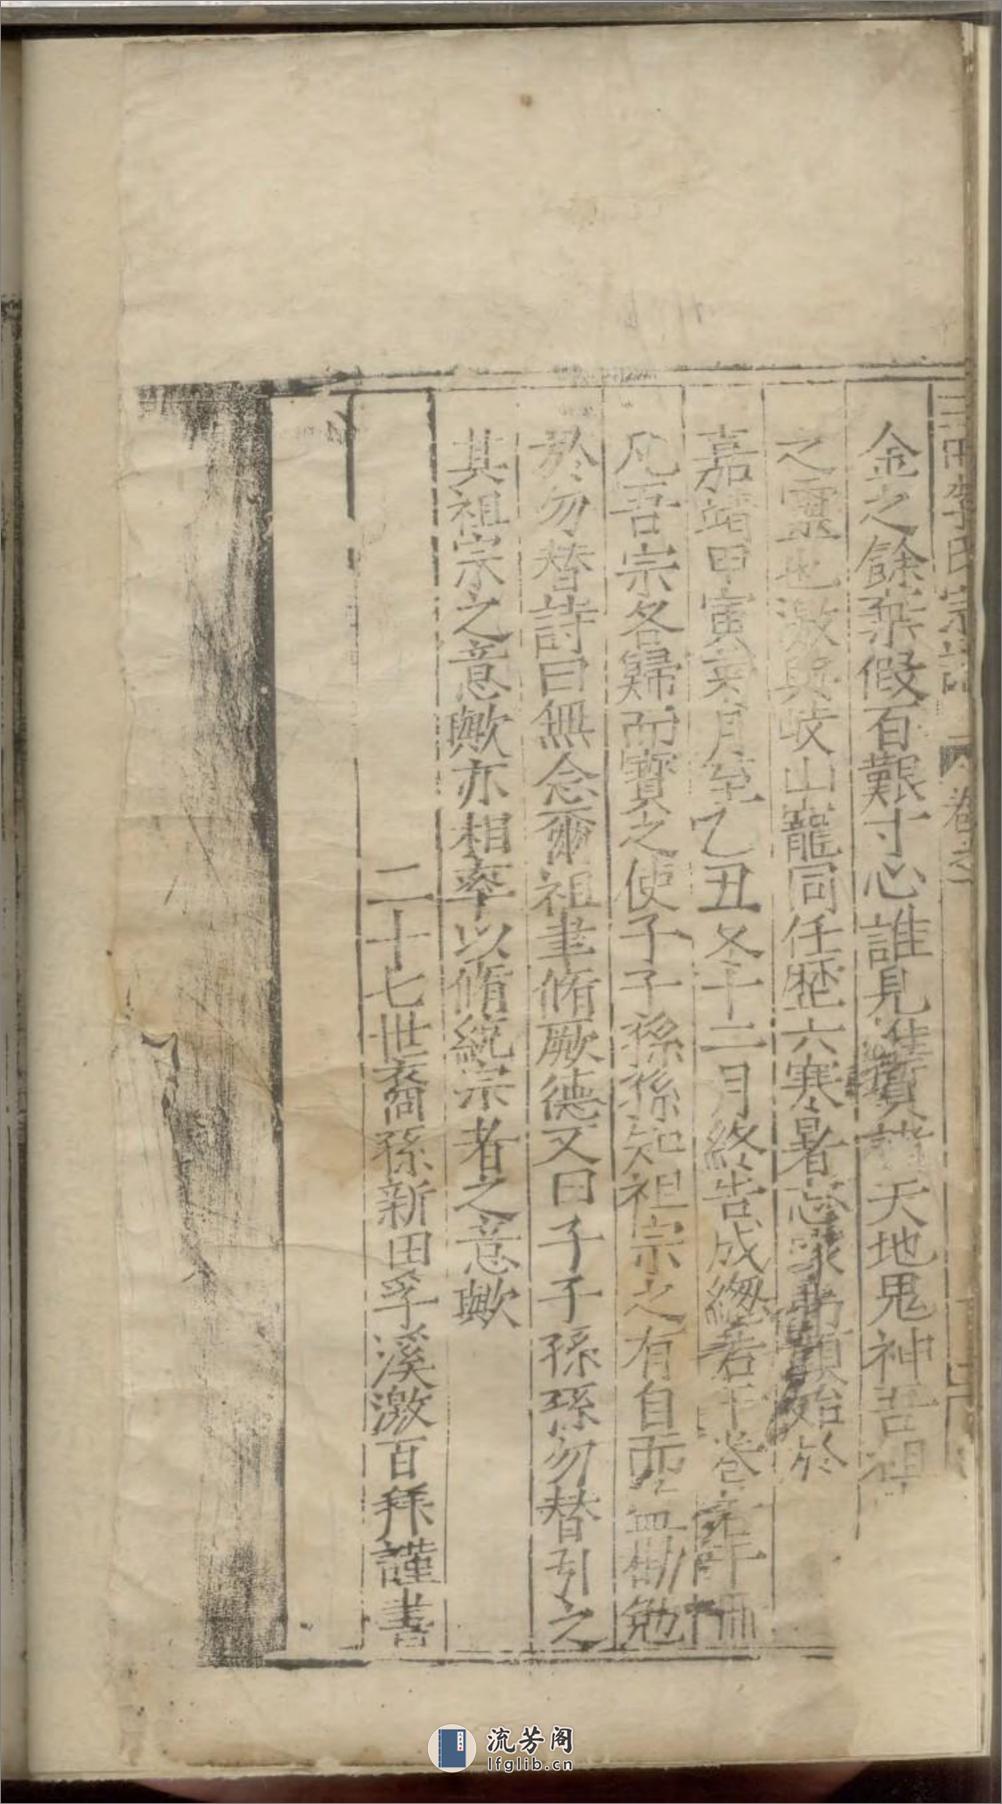 三田李氏宗譜 卷之
金之餘燊假百艱寸心誰見惟質諸天地鬼神吾祖
之靈也激與岐山寵同任歷六寒暑忘家弗顧始於
嘉靖甲寅亥月至乙丑冬十二月終告成緫若干卷若干冊
凡吾宗各歸而寶之使子子孫孫知祖宗之有自而勉
於勿替詩曰無念爾祖聿脩厥德又曰子子孫孫勿替引之
其祖宗之意歟亦相率以脩統宗者之意歟
二十七世裔孫新田孚溪激百拜謹書
流芳阁
lfglib.cn